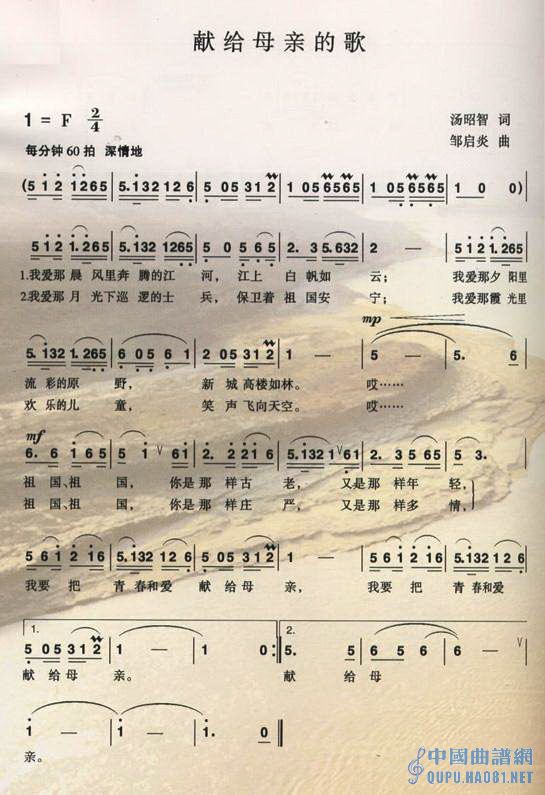 献给母亲的歌
1 = F 2/4
汤昭智 词
每分钟 60 拍 深情地
邹启炎 曲
(5 1 2 1265 | 5.132 12 6 | 5 05 31 2 | 1 05 6565 | 1 06565 | 1 0 ) |
5 1 2 1.265 | 5.132 1265 | 6 0 5 6 5 | 2. 3 5.632 | 2 — | 5 1 2 1.265 |
1.我爱那 晨 风里奔 腾的江 河, 江上 白 帆如 云; 我爱那夕 阳里
2.我爱那 月 光下巡 逻的士 兵, 保卫着 祖 国安 宁; 我爱那霞 光里
mp
5.132 1.265 | 6 05 6 1 | 5 05 31 2 | 1 — | 5 — | 5. 6 |
流 彩的原 野, 新 城 高楼如林。 哎……
欢 乐的儿 童, 笑 声 飞向天空。 哎……
mf
6. 6 1 65 | 5 V 61 | 2. 1 2 6 | 5.132 1 V 61 | 2. 3 565 | 5 3. |
祖 国、祖 国, 你是 那 样古 老, 又是 那 样年 轻,
祖 国、祖 国, 你是 那 样庄 严, 又是 那 样多 情,
5 6 1 2 16 | 5.132 12 6 | 5 05 31 2 | 1 — | 5 6 1 2 16 | 5.132 126 |
我要 把 青 春和爱 献 给母 亲, 我要 把 青 春和爱
1. 2.
5 05 31 2 | 1 — | 1 0 :| 5. 5 6 5 | 6 — V |
献 给 母 亲。 献 给 母
1 — | 1 — | 1 — | 1. 0 0 ‖
亲。
中國曲譜網
QUPU.HAO81.NET